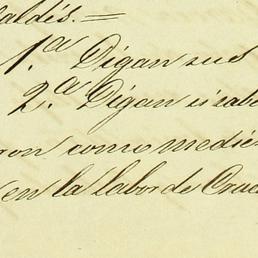 aldés. =
1.ª Digan sus
2.ª Digan si sabe
ron como medie
en la labor de Cruc